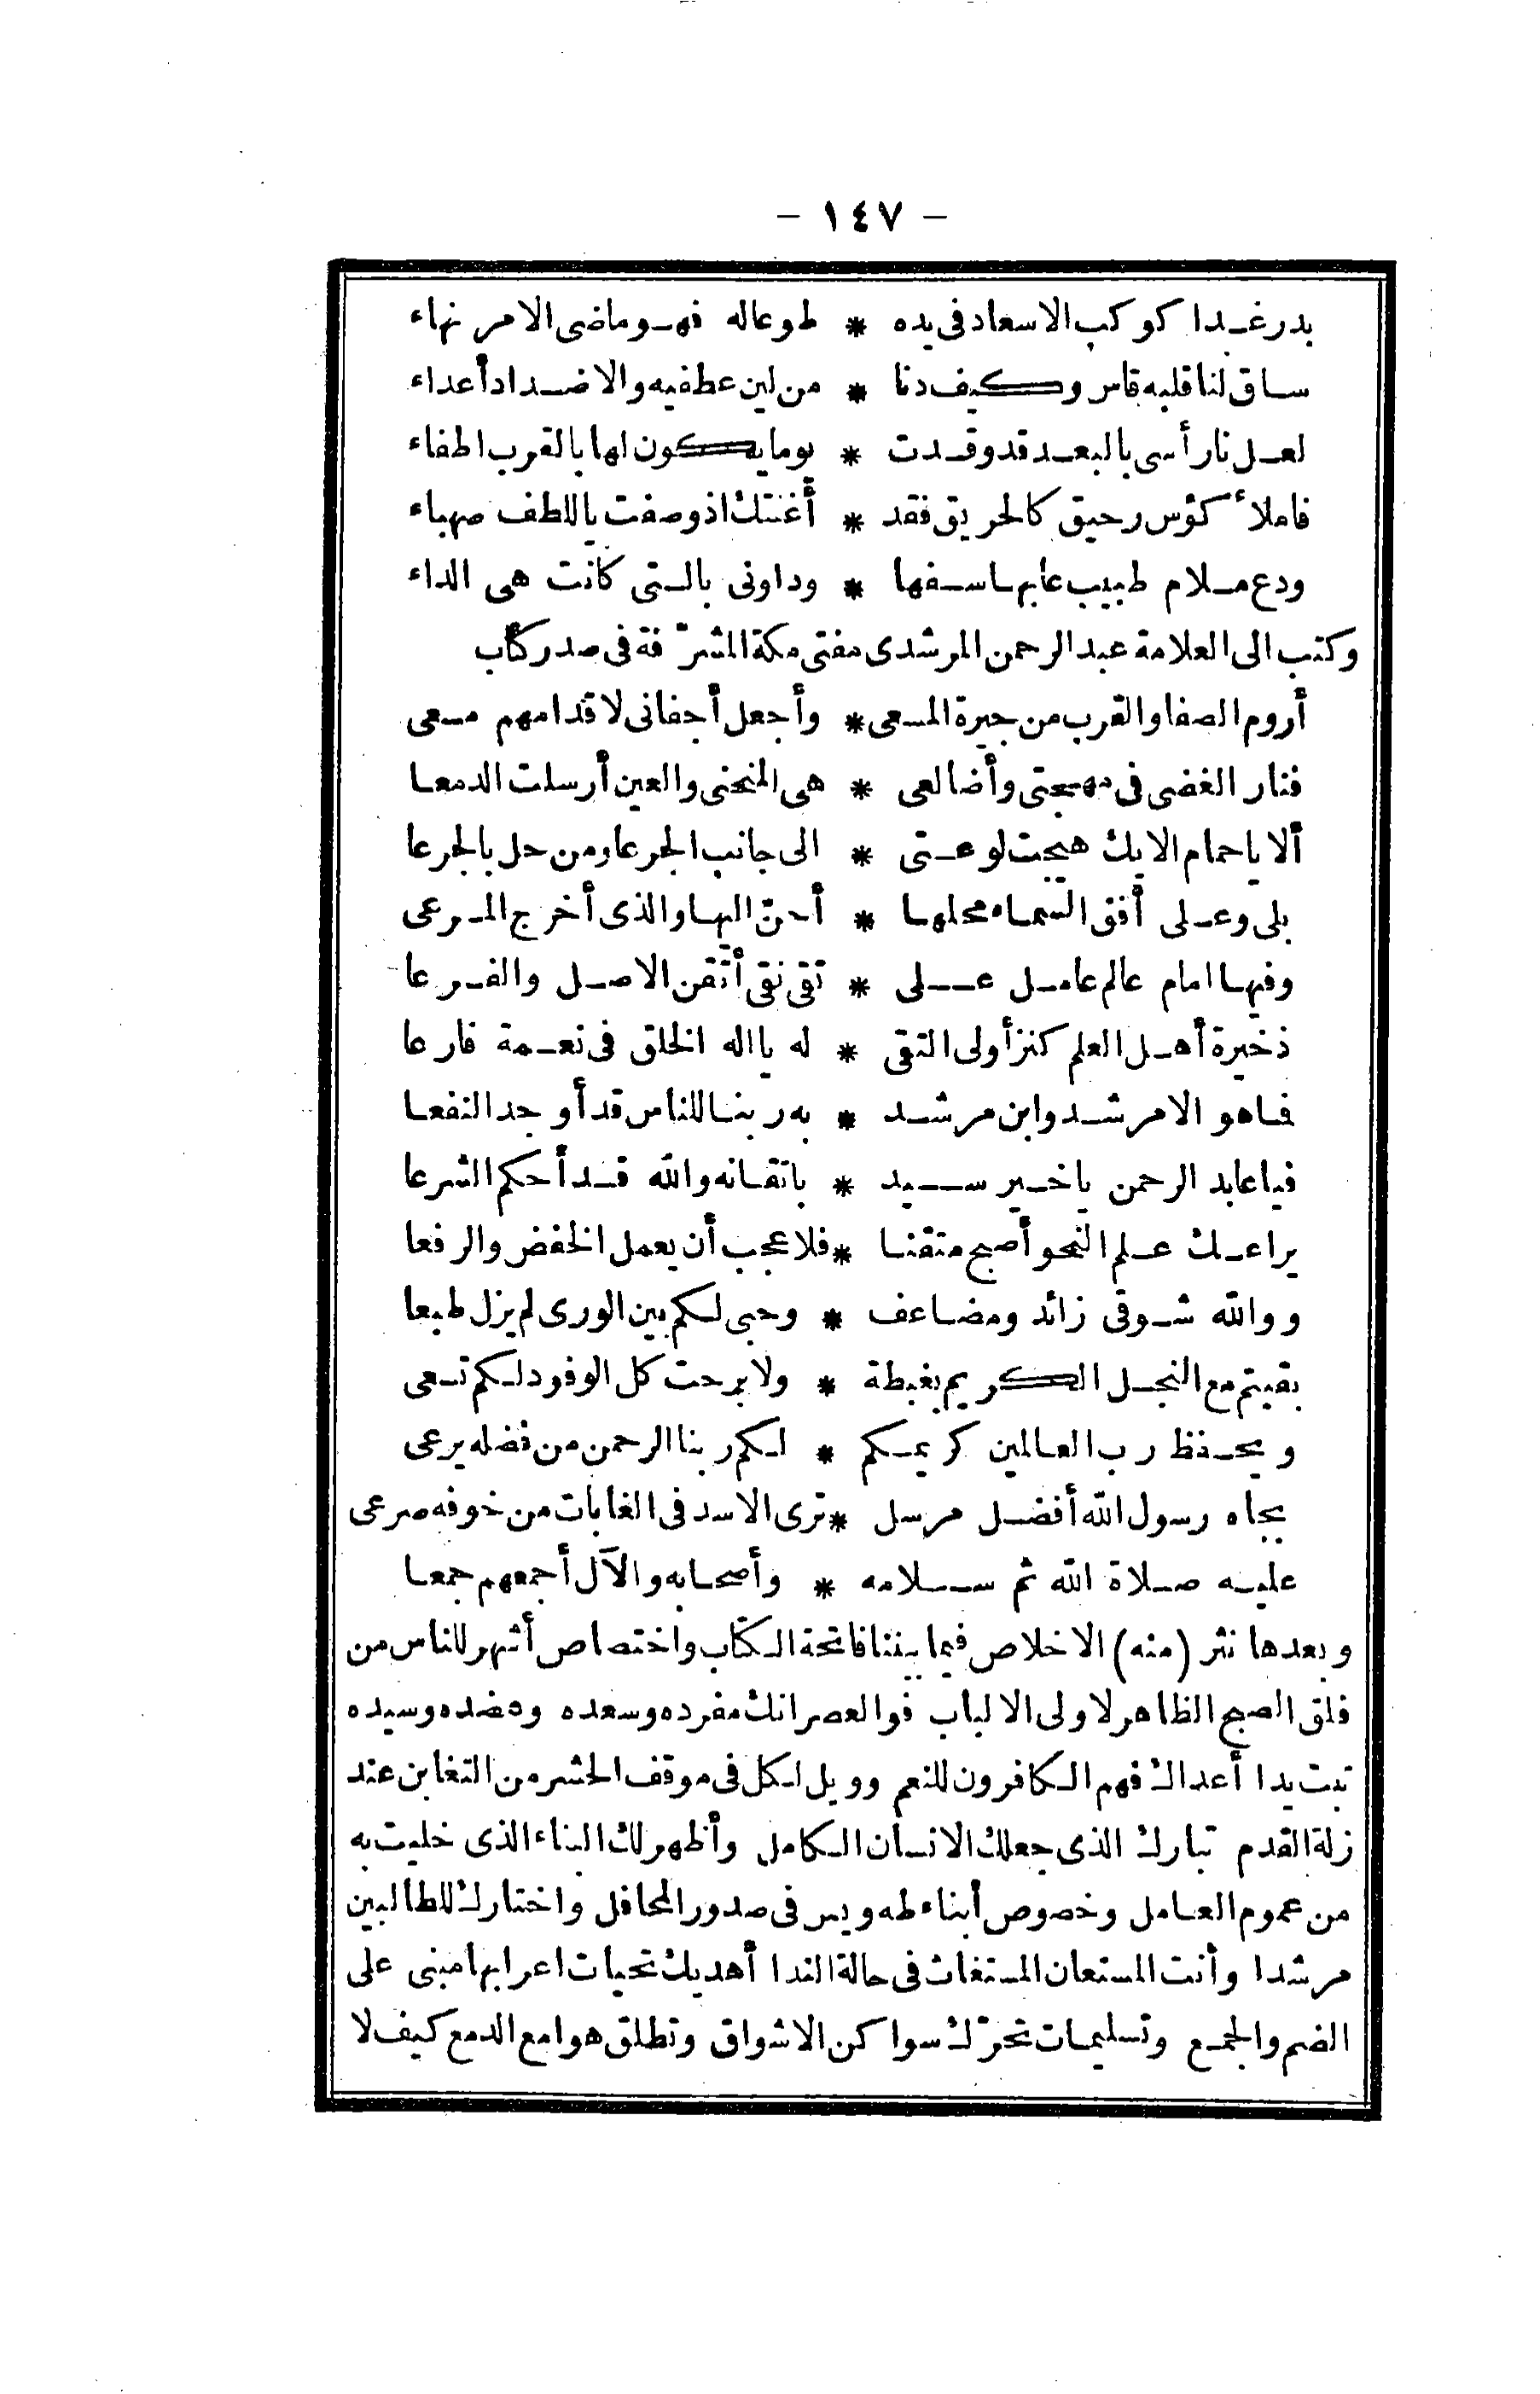 - ١٤٧ -
بدر غدا كوكب الاسعاد فى يده * طوعا له فهو ماضى الامر نهاء
ساق لنا قلبه قاس وكيف دنا * من لين عطفيه والاضداد أعداء
لعل نار أسى بالبعد قد وقدت * يوما يكون لها بالقرب اطفاء
فاملأ كؤس رحيق كالحريق فقد * أغنتك اذ وصفت باللطف صهباء
ودع ملام طبيب عابها سفها * وداونى بالتى كانت هى الداء
وكتب الى العلامة عبد الرحمن المرشدى مفتى مكة المشرّفة فى صدر كتاب
أروم الصفا والقرب من جيرة المسعى * وأجعل أجفانى لاقدامهم مسعى
فنار الغضى فى مهجتى وأضالعى * هى المنحنى والعين أرسلت الدمعا
ألا يا حمام الايك هيجت لوعتى * الى جانب الجرعا ومن حل بالجرعا
بلى وعلى أفق السماء محلها * أحنّ اليها والذى أخرج المرعى
وفيها امام عالم عامل على * تقى نقى أتقن الاصل والفرعا
ذخيرة أهل العلم كنز أولى التقى * له يا اله الخلق فى نعمة فارعا
فما هو الا مرشد وابن مرشد * به ربنا للناس قد أوجد النفعا
فيا عابد الرحمن يا خير سيد * باتقانه والله قد أحكم الشرعا
يراعك علم النحو أصبح متقنا * فلا عجب أن يعمل الخفض والرفعا
ووالله شوقى زائد ومضاعف * وحبى لكم بين الورى لم يزل طبعا
بقيتم مع النجل الكريم بغبطة * ولا برحت كل الوفود لكم تسعى
ويحفظ رب العالمين كريمكم * لكم ربنا الرحمن من فضله يرعى
بجاه رسول الله أفضل مرسل * ترى الاسد فى الغابات من خوفه صرعى
عليه صلاة الله ثم سلامه * وأصحابه والآل أجمعهم جمعا
وبعدها نثر (منه) الاخلاص فيما بيننا فاتحة الكتاب واختصاص أشهر للناس من
فلق الصبح الظاهر لاولى الالباب فوالعصر انك مفرده وسعده وعضده وسيده
تبت يدا أعداك فهم الكافرون للنعم وويل لكل فى موقف الحشر من التغابن عند
زلة القدم تبارك الذى جعلك الانسان الكامل وأظهر لك البناء الذى خليت به
من عموم العامل وخصوص أبناء طه ويس فى صدور المحافل واختارك للطالبين
مرشدا وأنت المستعان المستغاث فى حالة الندا أهديك تحيات اعرابها مبنى على
الضم والجمع وتسليمات تحرّك سواكن الاشواق وتطلق هوامع الدمع كيف لا